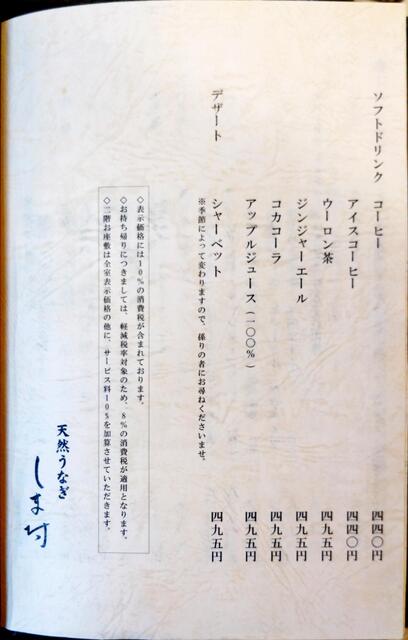 ソフトドリンク コーヒー 四四〇円
アイスコーヒー 四四〇円
ウーロン茶 四九五円
ジンジャーエール 四九五円
コカコーラ 四九五円
アップルジュース(一〇〇%) 四九五円
デザート シャーベット 四九五円
※季節によって変わりますので、係りの者にお尋ねくださいませ。
◇表示価格には10%の消費税が含まれております。
◇お持ち帰りにつきましては、軽減税率対象のため、8%の消費税が適用となります。
◇二階お座敷は全室表示価格の他に、サービス料10%を加算させていただきます。
天然うなぎ
しま村